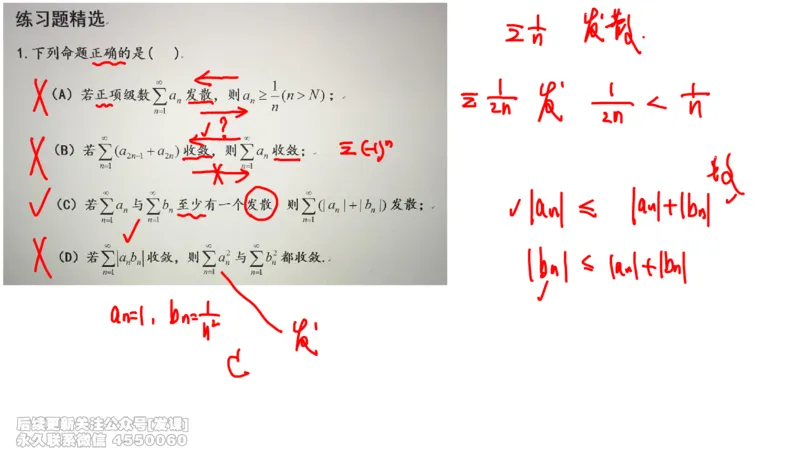 练习题精选
1.下列命题正确的是( ).
(A) 若正项级数 $\sum_{n=1}^{\infty} a_n$ 发散，则 $a_n \geq \frac{1}{n}(n > N)$；
(B) 若 $\sum_{n=1}^{\infty}(a_{2n-1}+a_{2n})$ 收敛，则 $\sum_{n=1}^{\infty} a_n$ 收敛；
(C) 若 $\sum_{n=1}^{\infty} a_n$ 与 $\sum_{n=1}^{\infty} b_n$ 至少有一个发散，则 $\sum_{n=1}^{\infty}(|a_n|+|b_n|)$ 发散；
(D) 若 $\sum_{n=1}^{\infty}|a_n b_n|$ 收敛，则 $\sum_{n=1}^{\infty} a_n^2$ 与 $\sum_{n=1}^{\infty} b_n^2$ 都收敛.
?
$\Sigma(-1)^n$
an=1, bn=$\frac{1}{n^2}$
发
C
$\Sigma\frac{1}{n}$ 发散.
$\Sigma\frac{1}{2n}$ 发 $\frac{1}{2n} < \frac{1}{n}$
|an| ≤ |an|+|bn|
|bn| ≤ |an|+|bn|
后续更新关注公众号[发课]
永久联系微信 4550060